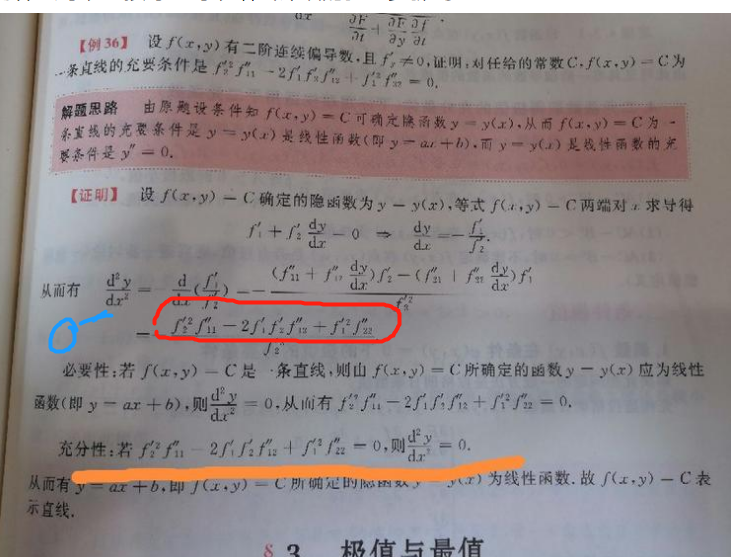 ∂F/∂t + ∂F/∂y ∂f/∂t
【例36】 设 f(x,y) 有二阶连续偏导数,且 f′₂≠0,证明:对任给的常数C,f(x,y) = C为
一条直线的充要条件是 f′₂²f″₁₁ - 2f′₁f′₂f″₁₂ + f′₁²f″₂₂ = 0.
解题思路 由原题设条件知 f(x,y) = C 可确定隐函数 y = y(x),从而 f(x,y) = C 为一
条直线的充要条件是 y = y(x) 是线性函数(即 y = ax + b),而 y = y(x) 是线性函数的充
要条件是 y″ = 0.
【证明】 设 f(x,y) = C 确定的隐函数为 y = y(x),等式 f(x,y) = C 两端对 x 求导得
f′₁ + f′₂ dy/dx = 0 ⇒ dy/dx = - f′₁/f′₂.
从而有 d²y/dx² = - d/dx(f′₁/f′₂) = - ((f″₁₁ + f″₁₂ dy/dx)f′₂ - (f″₂₁ + f″₂₂ dy/dx)f′₁)/f′₂²
= - (f′₂²f″₁₁ - 2f′₁f′₂f″₁₂ + f′₁²f″₂₂)/f′₂
必要性:若 f(x,y) = C 是一条直线,则由 f(x,y) = C 所确定的函数 y = y(x) 应为线性
函数(即 y = ax + b),则 d²y/dx² = 0,从而有 f′₂²f″₁₁ - 2f′₁f′₂f″₁₂ + f′₁²f″₂₂ = 0.
充分性:若 f′₂²f″₁₁ - 2f′₁f′₂f″₁₂ + f′₁²f″₂₂ = 0,则 d²y/dx² = 0.
从而有 y = ax + b,即 f(x,y) = C 所确定的隐函数 y = y(x) 为线性函数.故 f(x,y) = C 表
示直线.
§3 极值与最值